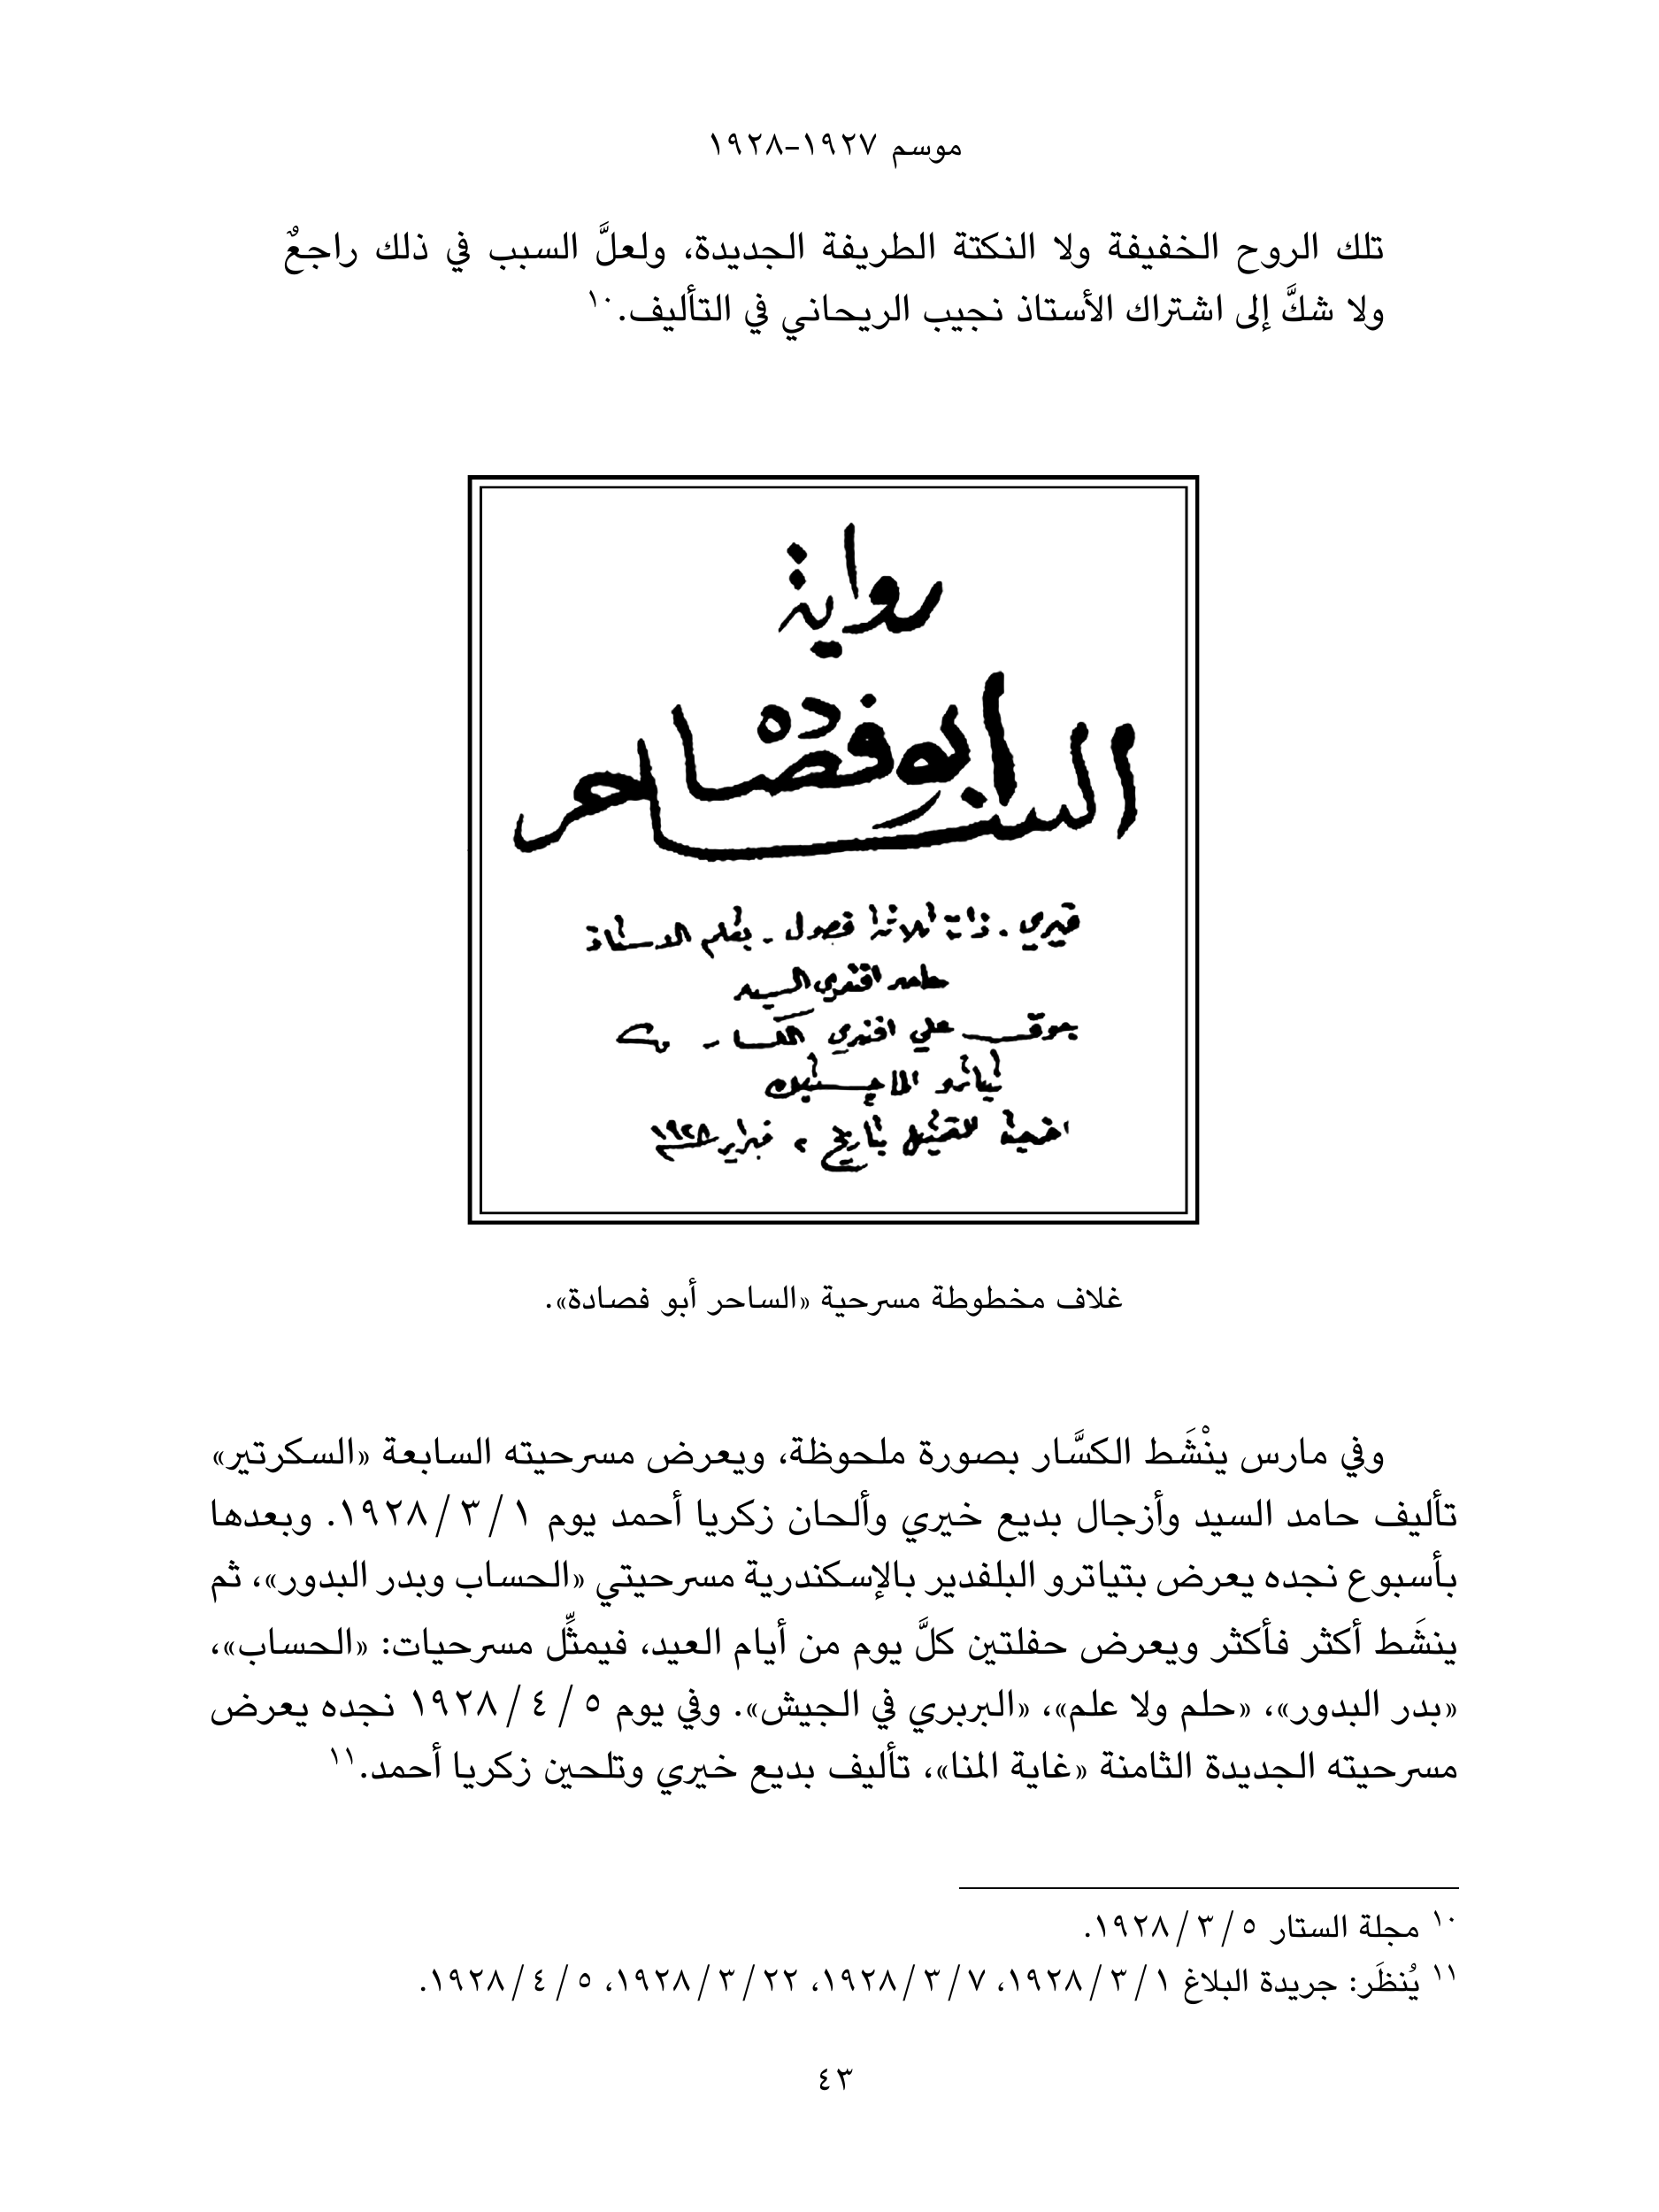 موسم ١٩٢٧–١٩٢٨
تلك الروح الخفيفة ولا النكتة الطريفة الجديدة، ولعلَّ السبب في ذلك راجعٌ
ولا شكَّ إلى اشتراك الأستاذ نجيب الريحاني في التأليف.١٠
رواية
الساحر ابو فصاده
ذات ثلاثة فصول - بقلم الاستاذ
حامد افندي السيد
جوق علي افندي الكسار
تياترو الماجستيك
للتمثيل بتاريخ ٢ فبراير ١٩٢٨
غلاف مخطوطة مسرحية «الساحر أبو فصادة».
وفي مارس ينْشَط الكسَّار بصورة ملحوظة، ويعرض مسرحيته السابعة «السكرتير»
تأليف حامد السيد وأزجال بديع خيري وألحان زكريا أحمد يوم ١ / ٣ / ١٩٢٨. وبعدها
بأسبوع نجده يعرض بتياترو البلفدير بالإسكندرية مسرحيتي «الحساب وبدر البدور»، ثم
ينشَط أكثر فأكثر ويعرض حفلتين كلَّ يوم من أيام العيد، فيمثِّل مسرحيات: «الحساب»،
«بدر البدور»، «حلم ولا علم»، «البربري في الجيش». وفي يوم ٥ / ٤ / ١٩٢٨ نجده يعرض
مسرحيته الجديدة الثامنة «غاية المنا»، تأليف بديع خيري وتلحين زكريا أحمد.١١
١٠ مجلة الستار ٥ / ٣ / ١٩٢٨.
١١ يُنظَر: جريدة البلاغ ١ / ٣ / ١٩٢٨، ٧ / ٣ / ١٩٢٨، ٢٢ / ٣ / ١٩٢٨، ٥ / ٤ / ١٩٢٨.
٤٣